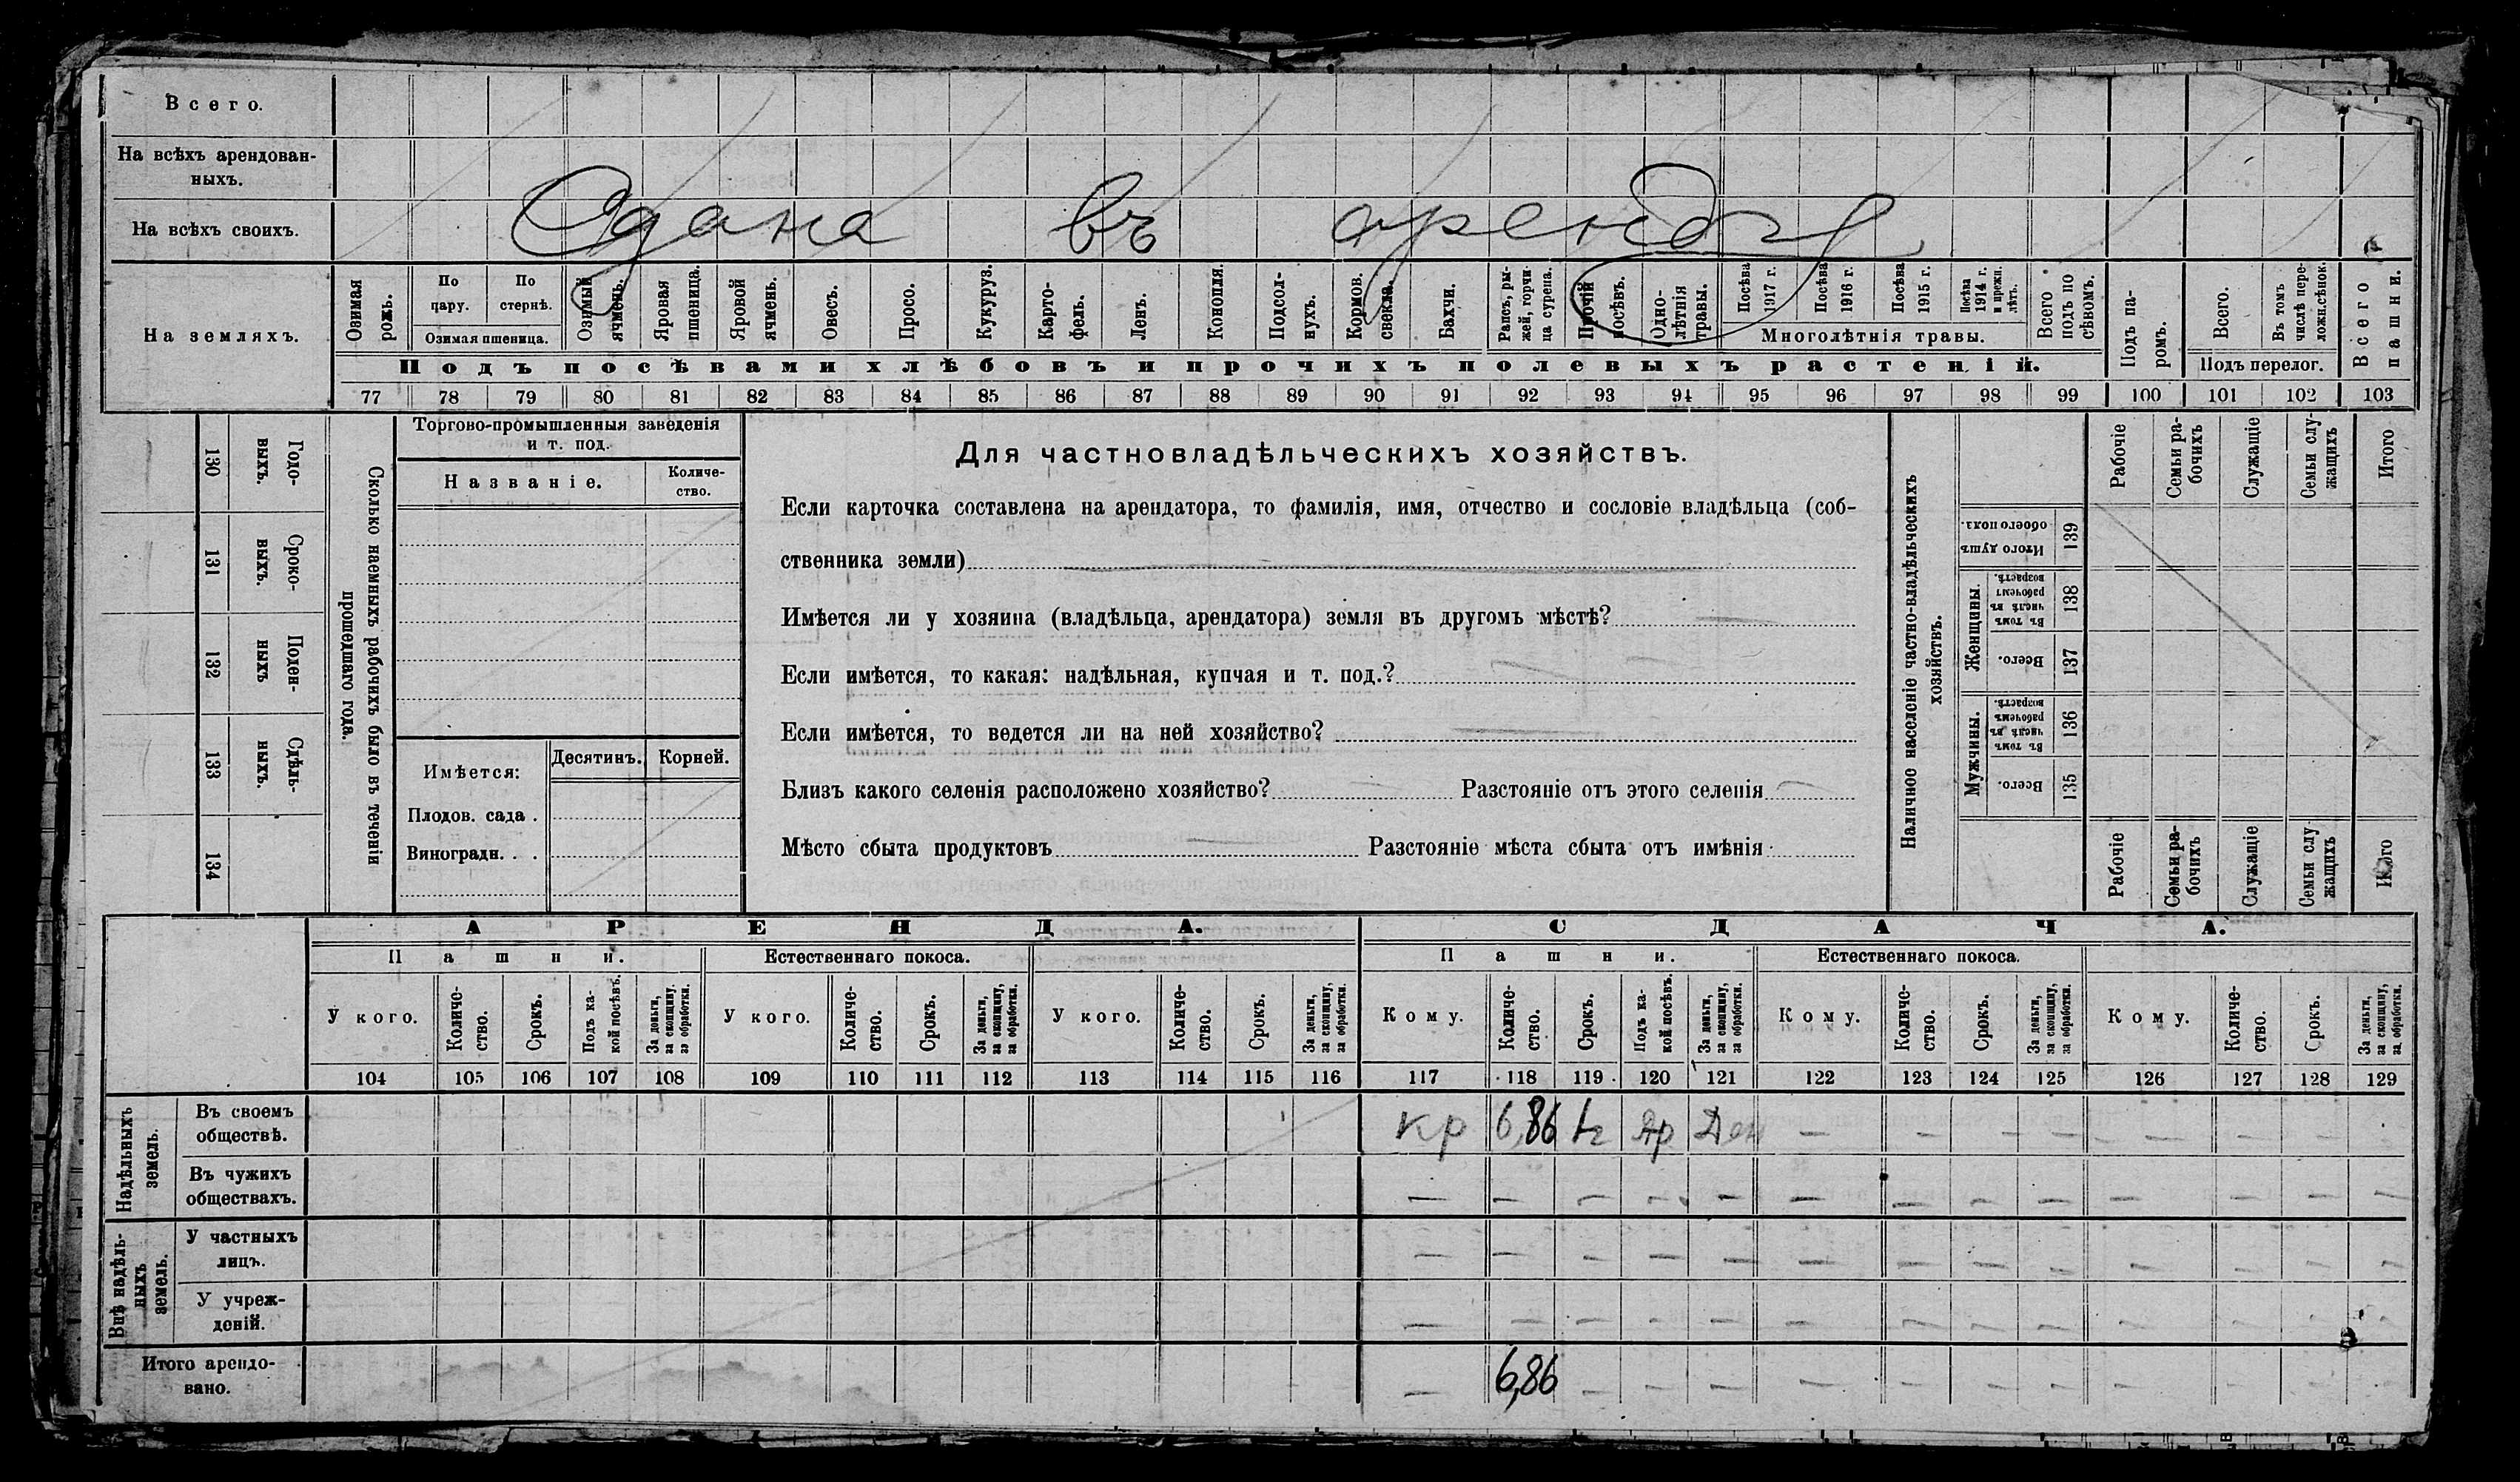 Всего.
На всѣхъ арендован-
ныхъ.
На всѣхъ своихъ.
Сдана въ аренду
На земляхъ.
Озимая рожь.
По пару.
По стернѣ.
Озимая пшеница.
Озимый ячмень.
Яровая пшеница.
Яровой ячмень.
Овесъ.
Просо.
Кукуруз.
Карто-
фель.
Ленъ.
Конопля.
Подсол-
нухъ.
Кормов. свекла.
Бахчи.
Рапсъ, ры-
жей, горчи-
ца сурепа.
Прочій посѣвъ.
Одно-
лѣтнія травы.
Посѣва 1917 г.
Посѣва 1916 г.
Посѣва 1915 г.
Посѣва 1914 г. и прежн. лѣтъ.
Многолѣтнія травы.
Всего подъ по
сѣвомъ.
Подъ па-
ромъ.
Всего.
Въ томъ числѣ пере-
ложн.сѣнок.
Подъ перелог.
Всего пашни.
Подъ посѣвами хлѣбовъ и прочихъ полевыхъ растеній.
77 78 79 80 81 82 83 84 85 86 87 88 89 90 91 92 93 94 95 96 97 98 99 100 101 102 103
130 Годо-
выхъ.
131 Сроко-
выхъ.
132 Поден-
ныхъ
133 Сдѣль-
ныхъ.
134
Сколько наемныхъ рабочихъ было въ теченіи
прошедшаго года.
Торгово-промышленныя заведенія
и т. под.
Названіе.
Количе-
ство.
Имѣется:
Десятинъ.
Корней.
Плодов. сада .
Виноградн. . .
Для частновладѣльческихъ хозяйствъ.
Если карточка составлена на арендатора, то фамилія, имя, отчество и сословіе владѣльца (соб-
ственника земли)
Имѣется ли у хозяина (владѣльца, арендатора) земля въ другомъ мѣстѣ? —
Если имѣется, то какая: надѣльная, купчая и т. под.? —
Если имѣется, то ведется ли на ней хозяйство? —
Близъ какого селенія расположено хозяйство? Разстояніе отъ этого селенія —
Мѣсто сбыта продуктовъ — Разстояніе мѣста сбыта отъ имѣнія
Наличное населеніе частно-владѣльческихъ
хозяйствъ.
Рабочіе
Семьи ра-
бочихъ
Служащіе
Семьи слу-
жащихъ
Итого
Итого душъ обоего пола. 139
Женщины.
Въ томъ числѣ въ рабочемъ возрастѣ. 138
Всего. 137
Мужчины.
Въ томъ числѣ въ рабочемъ возрастѣ. 136
Всего. 135
Рабочіе
Семьи ра-
бочихъ
Служащіе
Семьи слу-
жащихъ
Итого
АРЕНДА. СДАЧА.
Пашни. Естественнаго покоса. Пашни. Естественнаго покоса.
У кого. Количе-
ство. Срокъ. Подъ ка-
кой посѣвъ. За деньги, за скопщину, за обработки.
У кого. Количе-
ство. Срокъ. За деньги, за скопщину, за обработки.
У кого. Количе-
ство. Срокъ. За деньги, за скопщину, за обработки.
Кому. Количе-
ство. Срокъ. Подъ ка-
кой посѣвъ. За деньги, за скопщину, за обработки.
Кому. Количе-
ство. Срокъ. За деньги, за скопщину, за обработки.
Кому. Количе-
ство. Срокъ. За деньги, за скопщину, за обработки.
104 105 106 107 108 109 110 111 112 113 114 115 116 117 118 119 120 121 122 123 124 125 126 127 128 129
Надѣльныхъ
земель.
Въ своемъ
обществѣ.
Кр 6,86 Яр Ден — — — — — — — —
Въ чужихъ
обществахъ.
— — — — — — — — — — — — —
Внѣ надѣль-
ныхъ
земель.
У частныхъ
лицъ.
— — — — — — — — — — — — —
У учреж-
деній.
— — — — — — — — — — — — —
Итого арендо-
вано.
— 6,86 — — — — — — — — — — —